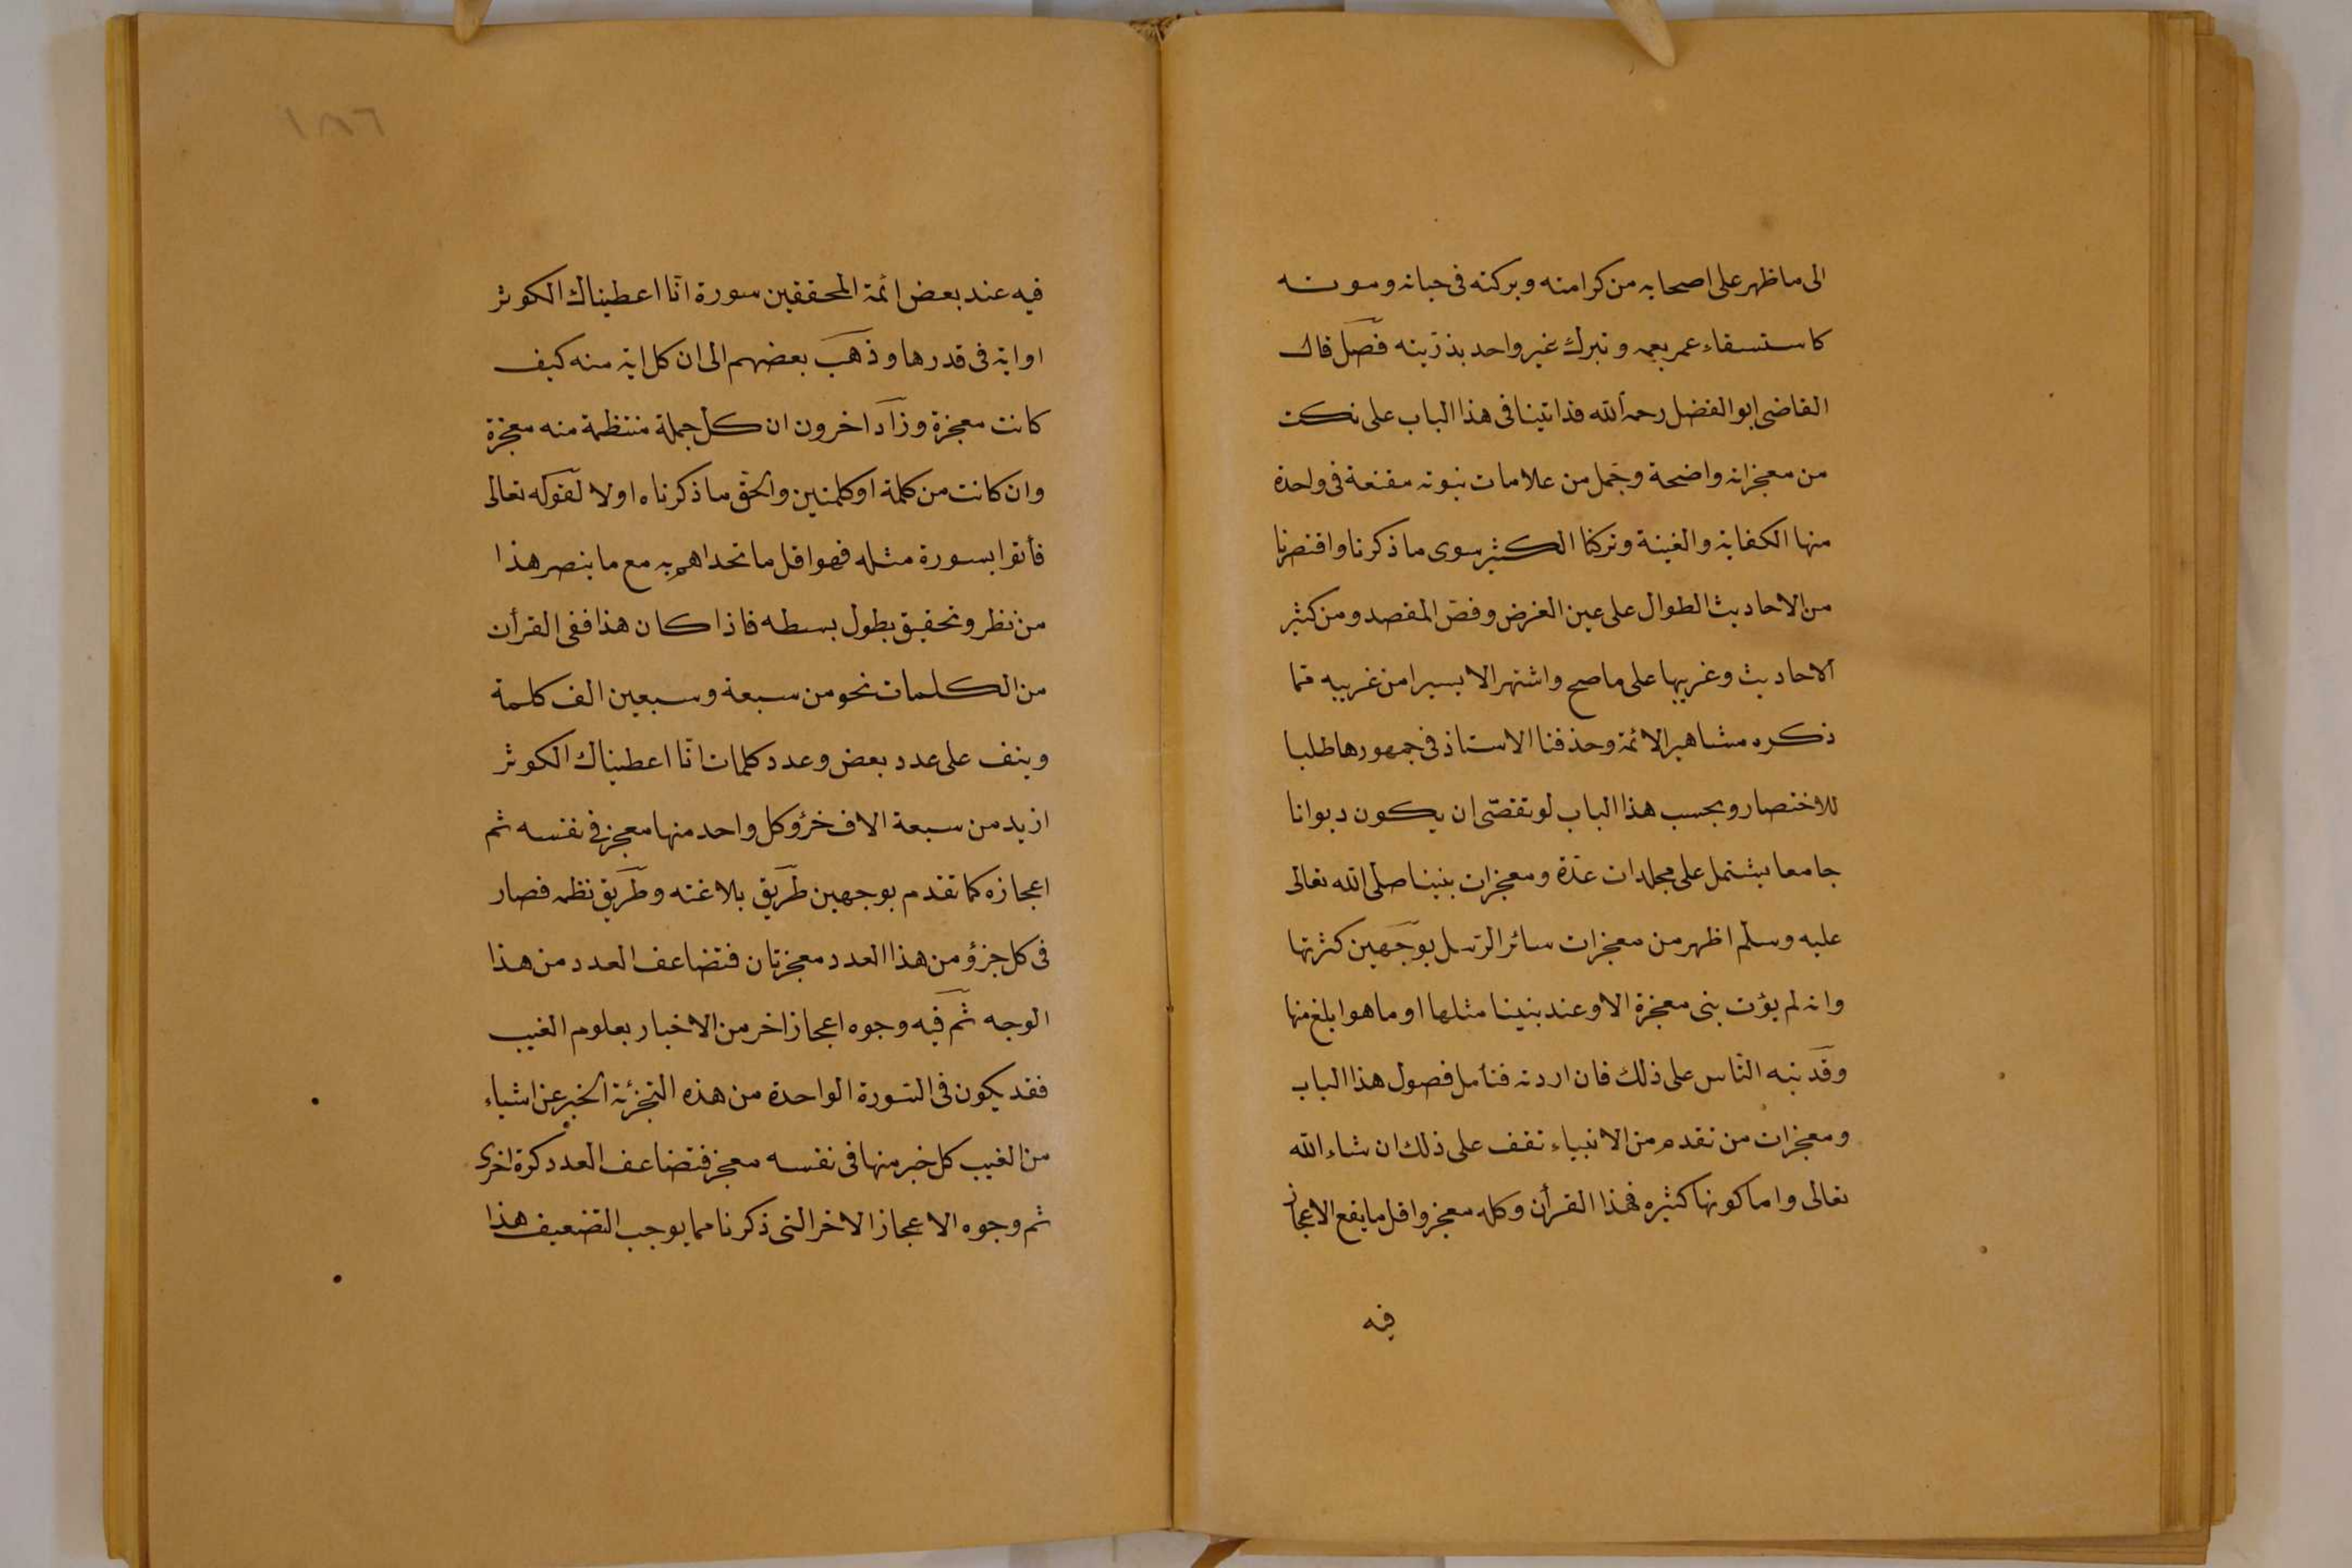 الى ما ظهر على اصحابه من كرامته وبركته فى حياته وموته
كاستسقاء عمر بعمه وتبرك غير واحد بذرّيته فصل قال
القاضى ابو الفضل رحمه الله قد اتينا فى هذا الباب على نكت
من معجزاته واضحة وجمل من علامات نبوته مقنعة فى واحدة
منها الكفاية والغنية وتركنا الكثير سوى ما ذكرنا واقتصرنا
من الاحاديث الطوال على عين الغرض وفص المقصد ومن كثير
الاحاديث وغريبها على ما صح واشتهر الا يسيرا من غريبه مما
ذكره مشاهير الائمة وحذفنا الاستاذ فى جمهورها طلبا
للاختصار وبحسب هذا الباب لو تقصّى ان يكون ديوانا
جامعا يشتمل على مجلدات عدّة ومعجزات نبينا صلى الله تعالى
عليه وسلم اظهر من معجزات سائر الرّسل بوجهين كثرتها
وانه لم يؤت نبى معجزة الا وعند نبينا مثلها او ما هو ابلغ منها
وقد نبه النّاس على ذلك فان اردته فتأمل فصول هذا الباب
ومعجزات من تقدم من الانبياء تقف على ذلك ان شاء الله
تعالى واما كونها كثيره فهذا القرأن وكله معجز واقل ما يقع الاعجاز
فيه
١٨٦
فيه عند بعض ائمة المحققين سورة انّا اعطيناك الكوثر
او اية فى قدرها وذهب بعضهم الى ان كل اية منه كيف
كانت معجزة وزاد اخرون ان كل جملة منتظمة منه معجزة
وان كانت من كلمة او كلمتين والحق ما ذكرناه اولا لقوله تعالى
فأتوا بسورة مثله فهو اقل ما تحداهم به مع ما ينصر هذا
من نظر وتحقيق يطول بسطه فاذا كان هذا ففى القرأن
من الكلمات نحو من سبعة وسبعين الف كلمة
وينف على عدد بعض وعدد كلمات انّا اعطيناك الكوثر
ازيد من سبعة الاف خزؤ كل واحد منها معجز فى نفسه ثم
اعجازه كما تقدم بوجهين طريق بلاغته وطريق نظمه فصار
فى كل جزؤ من هذا العدد معجزتان فتضاعف العدد من هذا
الوجه ثم فيه وجوه اعجاز اخر من الاخبار بعلوم الغيب
فقد يكون فى السّورة الواحدة من هذه التجزئة الخبر عن اشياء
من الغيب كل خبر منها فى نفسه معجز فتضاعف العدد كرة اخرى
ثم وجوه الاعجاز الاخر التى ذكرنا مما يوجب التضعيف هذا